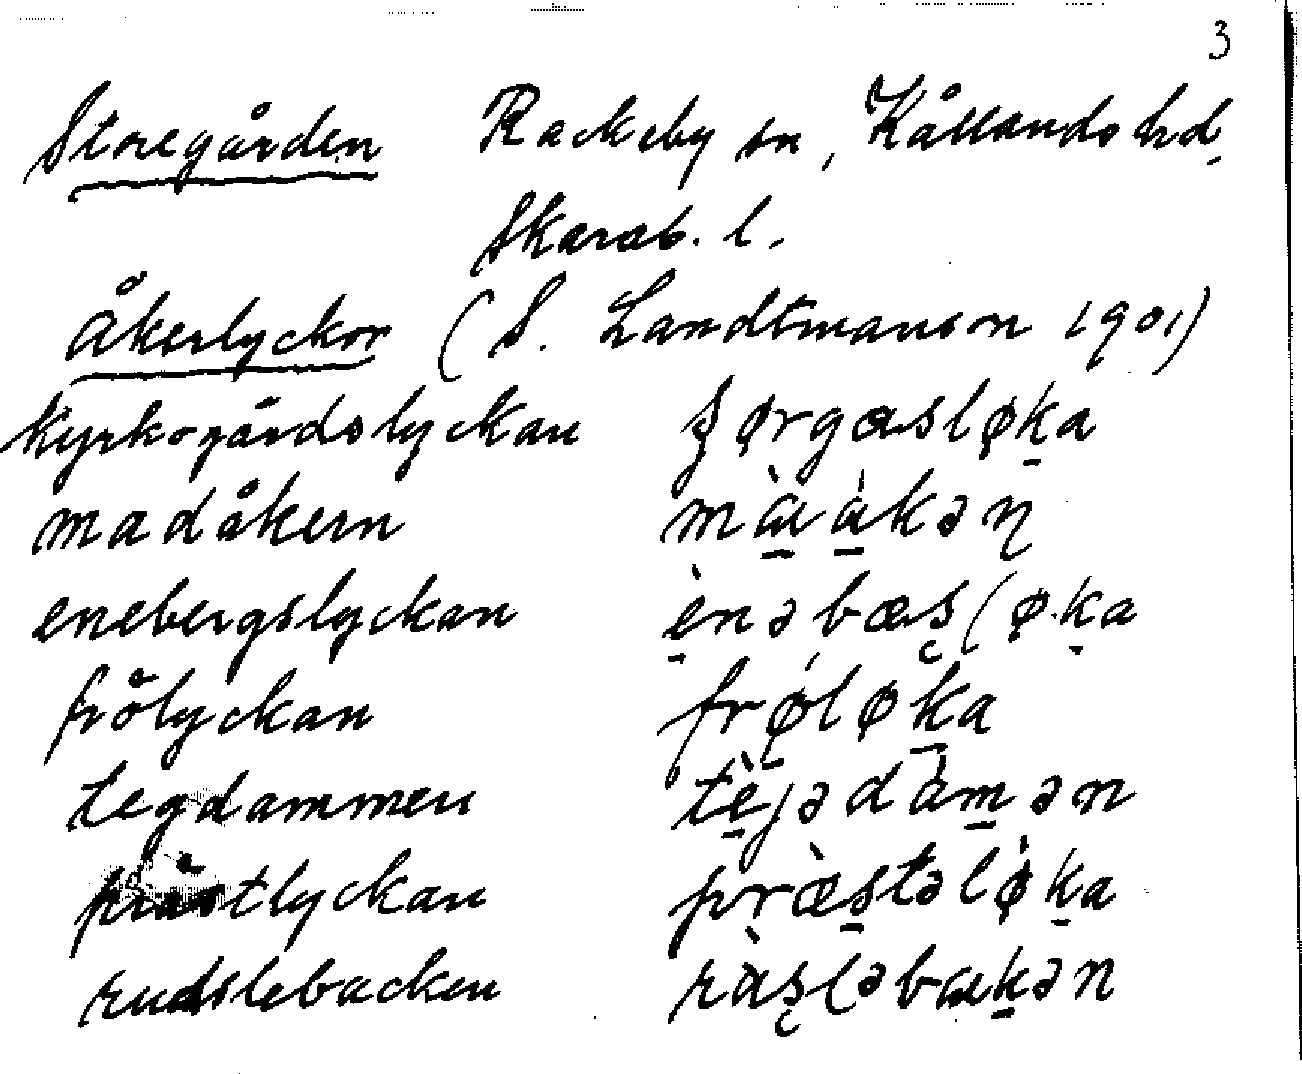 3
Storegården Rackeby sn, Kållands hd.
Skarab. l.
Åkerlyckor (S. Landtmanson 1901)
Kyrkogårdslyckan
madåkern
enebergslyckan
frölyckan frø̀lø̀ḵa
tegdammen tè̱jədàm̱ən
prästlyckan præ̀s̱təlø̀ḵa
rudslebacken